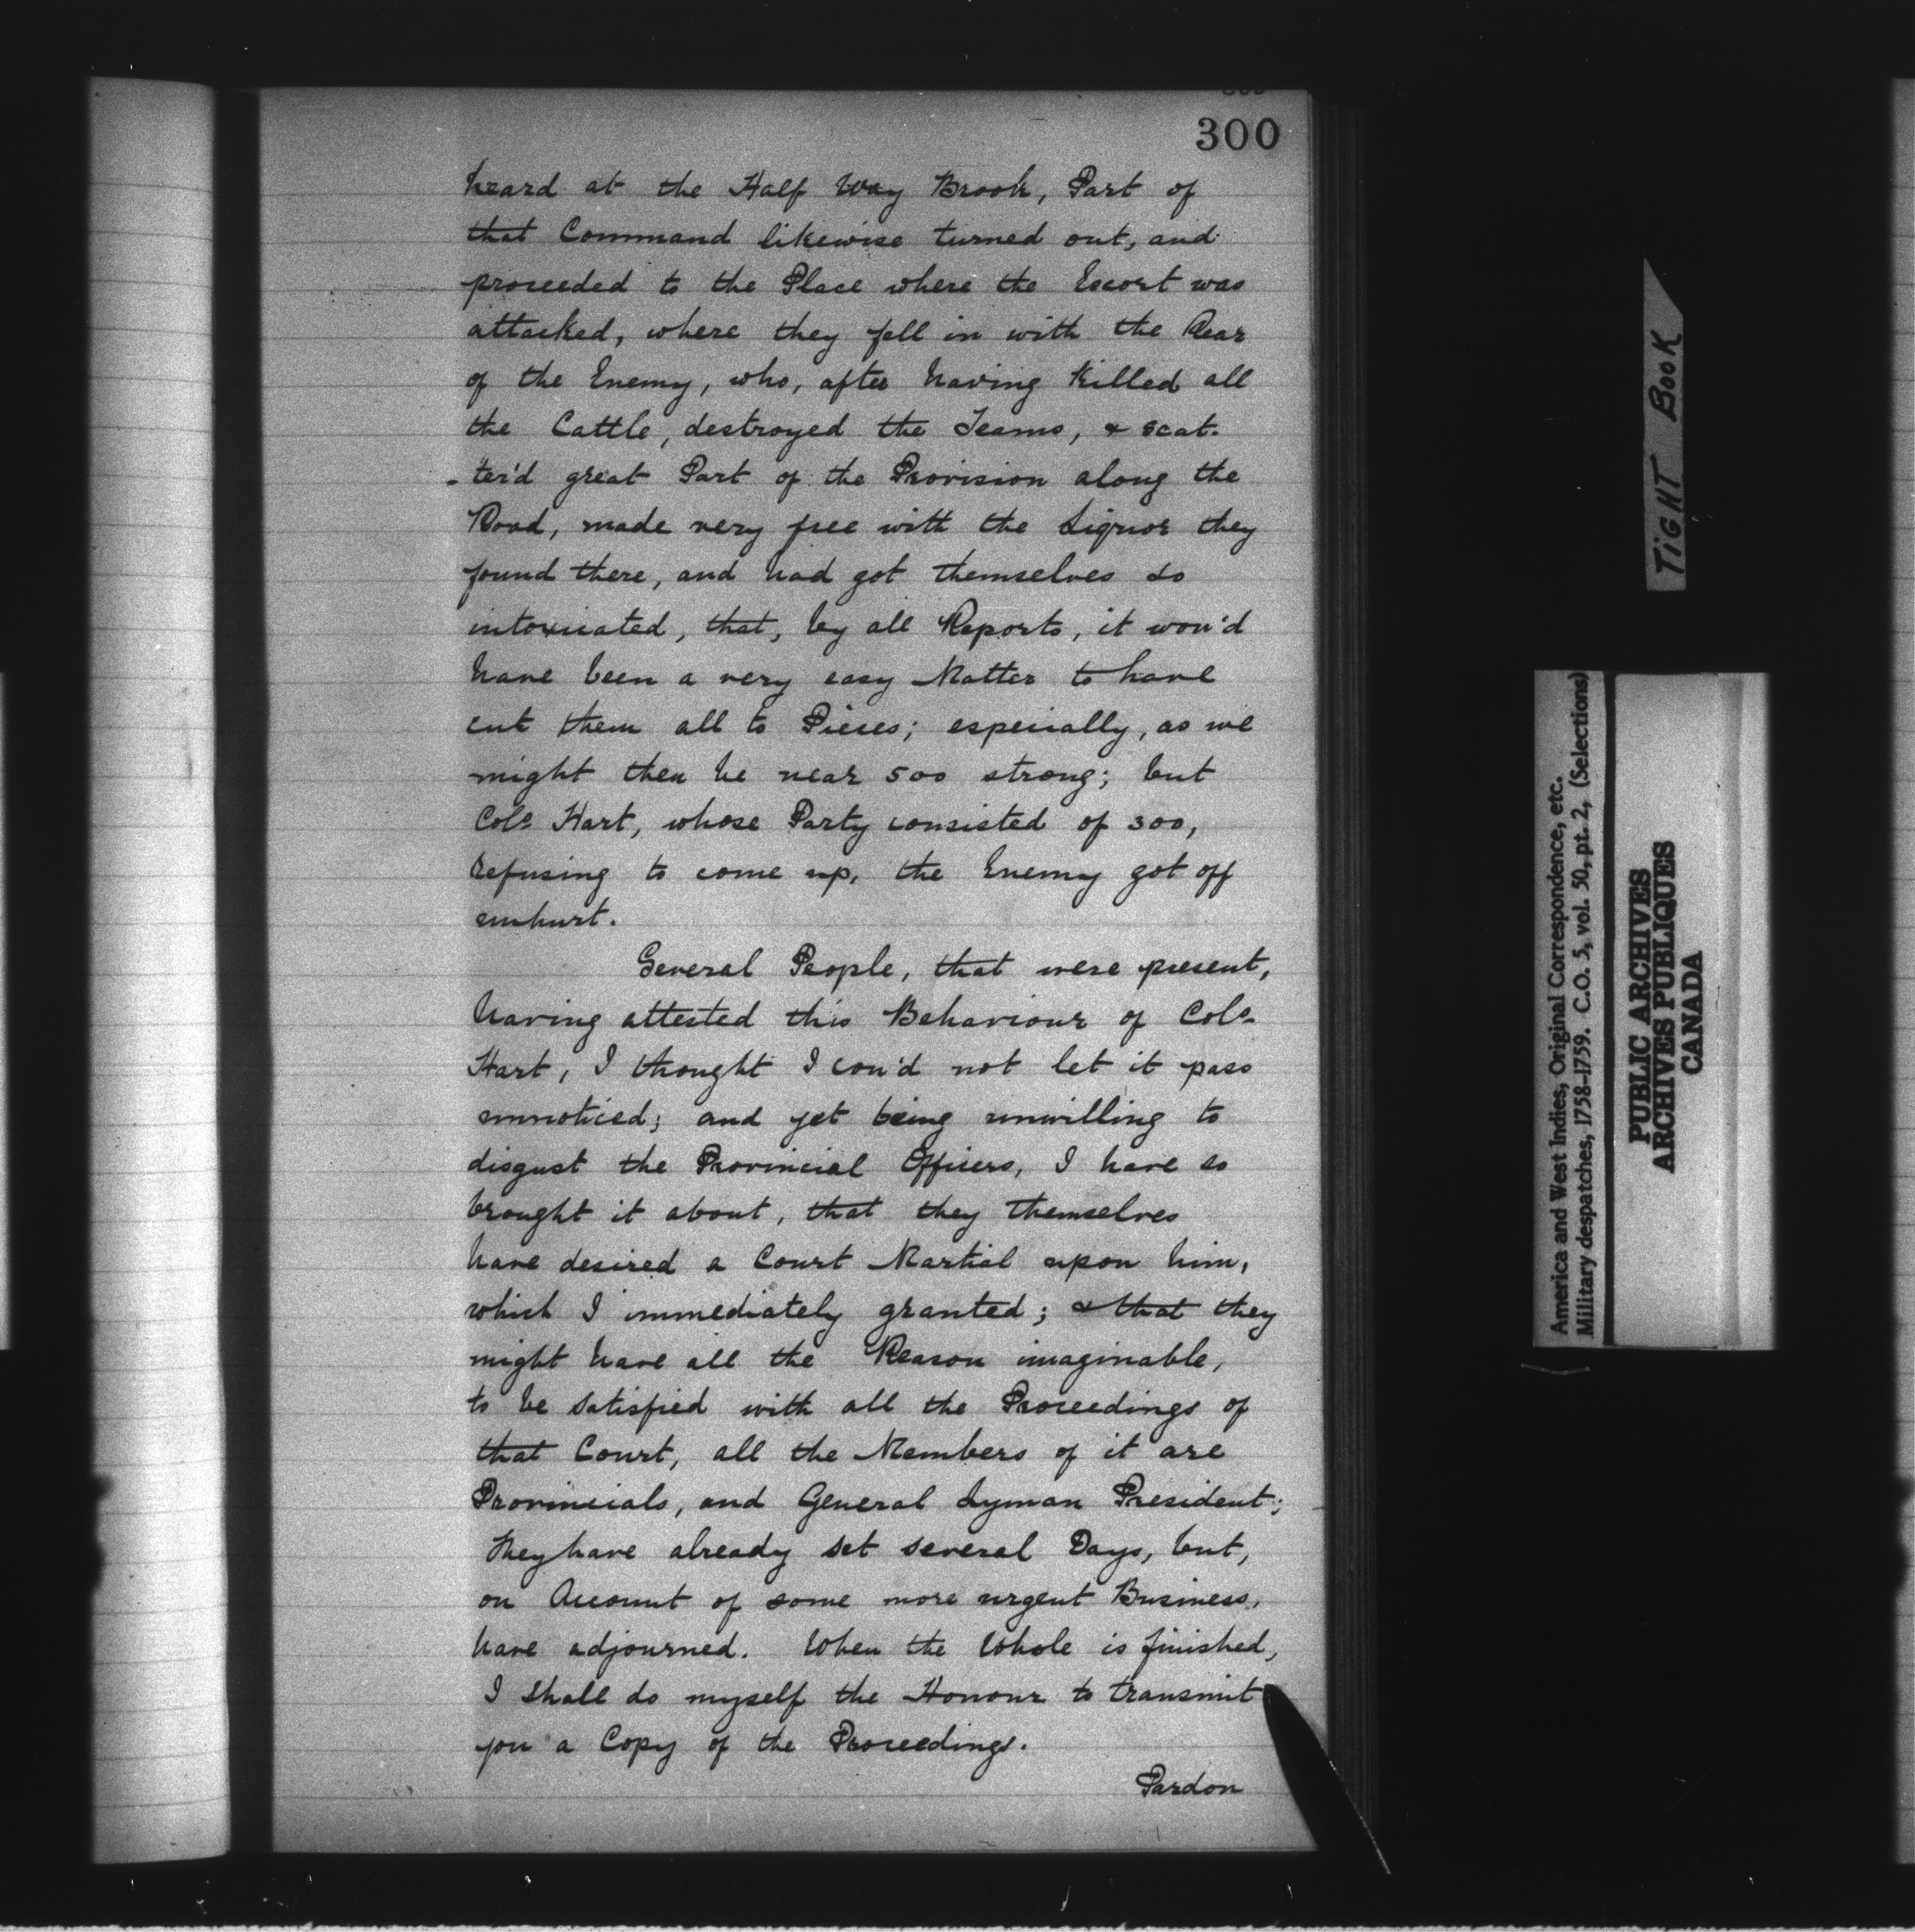 300
heard at the Half Way Brook, Part of
that Command likewise turned out, and
proceeded to the Place where the Escort was
attacked, where they fell in with the Rear
of the Enemy, who, after having killed all
the Cattle, destroyed the Teams, & scat-
-ter'd great Part of the Provision along the
Road, made very free with the Liquor they
found there, and had got themselves so
intoxicated, that, by all Reports, it wou'd
have been a very easy Matter to have
cut them all to Pieces; especially, as we
might then be near 500 strong; but
Colo. Hart, whose Party consisted of 300,
refusing to come up, the Enemy got off
unhurt.
Several People, that were present,
having attested this Behaviour of Colo.
Hart, I thought I cou'd not let it pass
unnoticed; and yet being unwilling to
disgust the Provincial Officers, I have so
brought it about, that they themselves
have desired a Court Martial upon him,
which I immediately granted; & that they
might have all the Reason imaginable,
to be satisfied with all the Proceedings of
that Court, all the Members of it are
Provincials, and General Lyman President;
They have already set several Days, but,
on Account of some more urgent Business,
have adjourned. When the Whole is finished,
I shall do myself the Honour to transmit
you a Copy of the Proceedings.
Pardon
TiGHT BooK
America and West Indies, Original Correspondence, etc.
Military despatches, 1758-1759. C.O. 5, vol. 50, pt. 2, (Selections)
PUBLIC ARCHIVES
ARCHIVES PUBLIQUES
CANADA